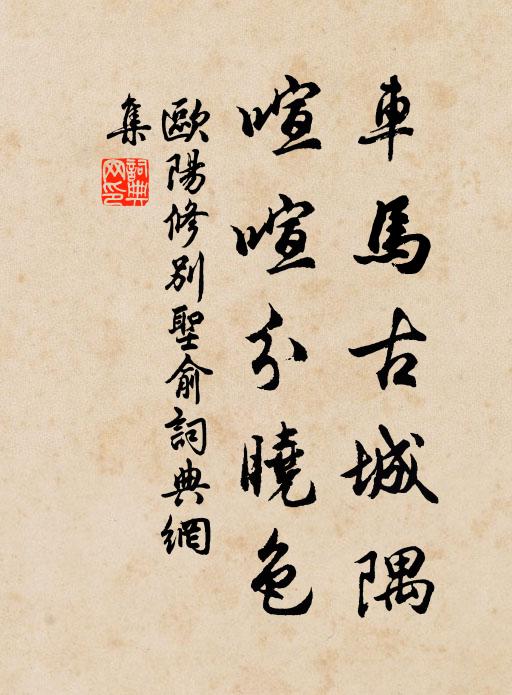 車馬古城隅
喧喧分曉色
歐陽修別聖俞詞典網
集
詞典
网印